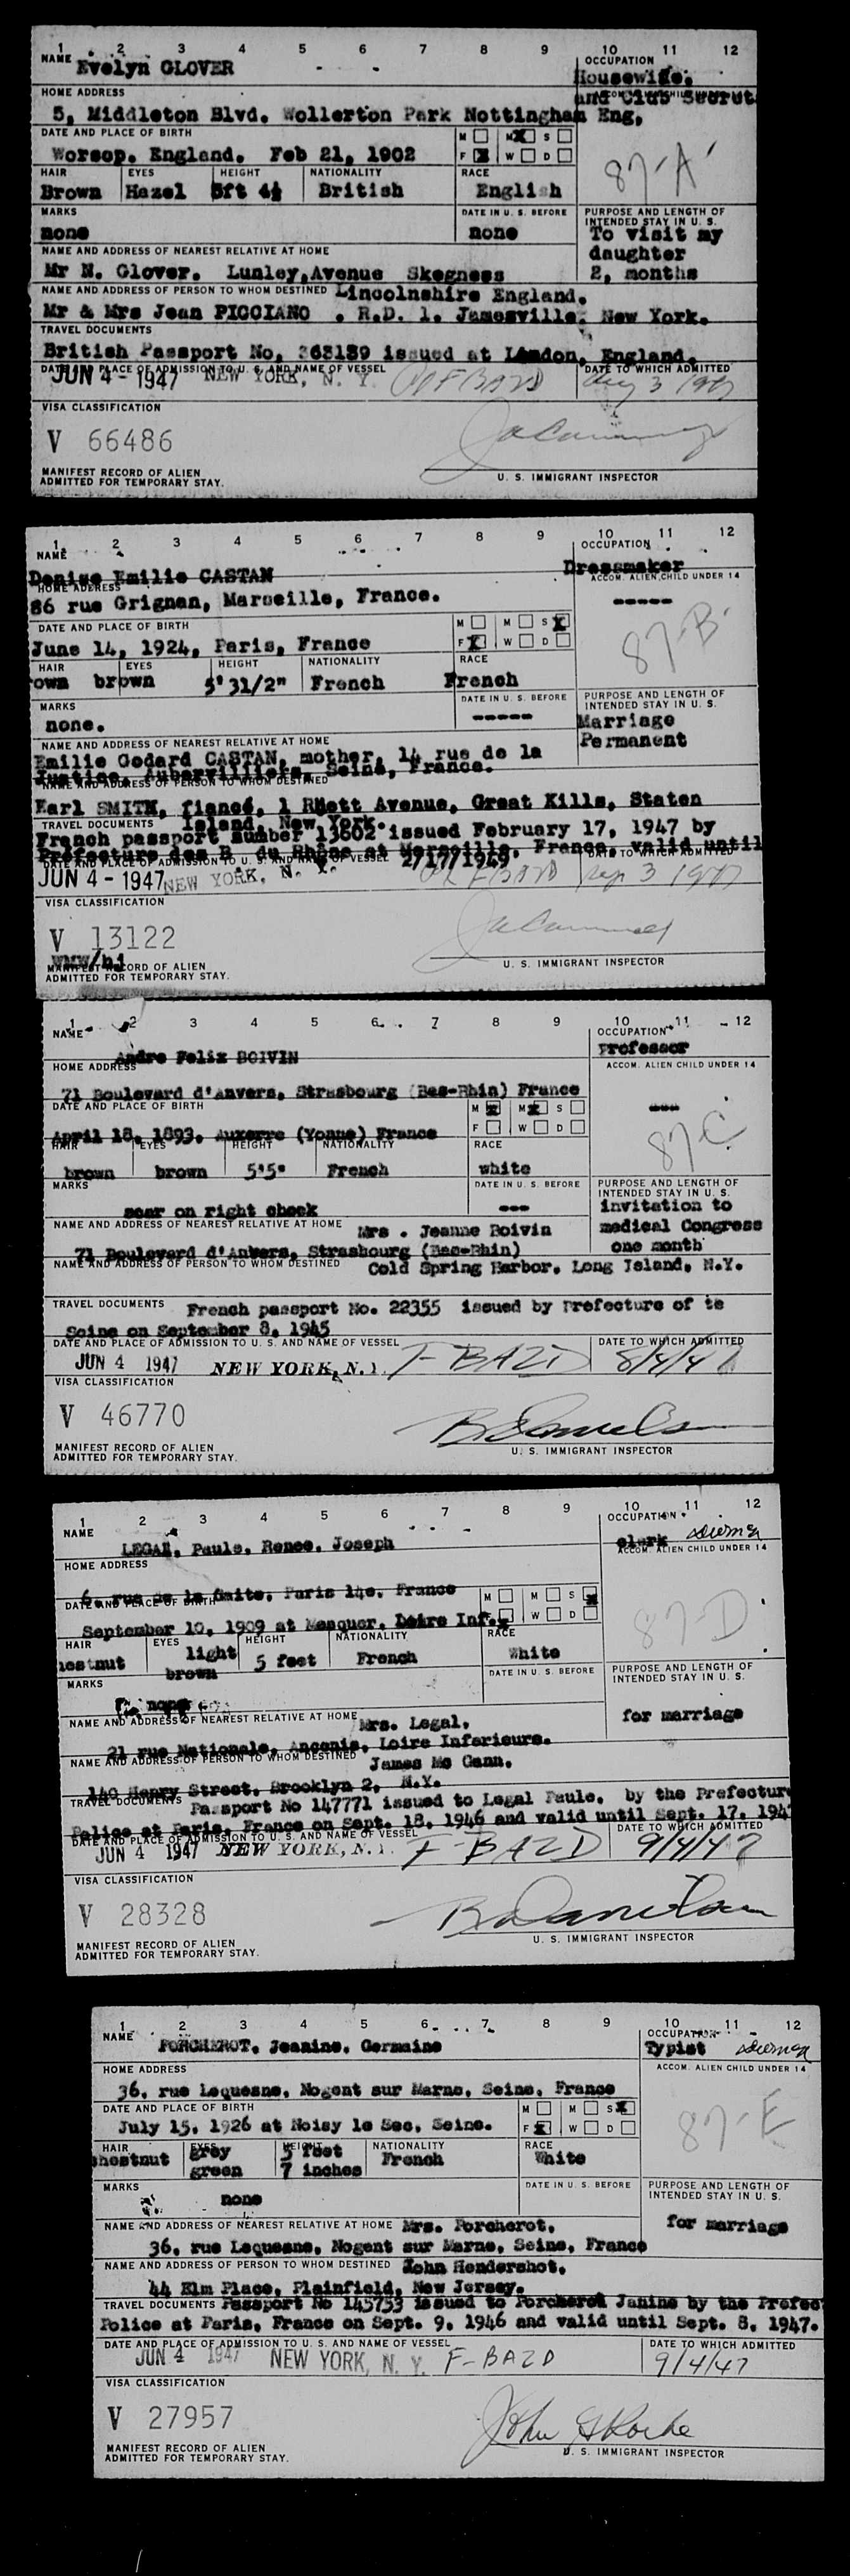 1 2 3 4 5 6 7 8 9 10 11 12
NAME Evelyn GLOVER
OCCUPATION Housewife,
and Club Secret
HOME ADDRESS
5, Middleton Blvd. Wollerton Park Nottingham Eng,
DATE AND PLACE OF BIRTH M M X S
Worsop. England. Feb 21, 1902 F X W D
87'A'
HAIR EYES HEIGHT NATIONALITY RACE
Brown Hazel 5ft 4½ British English
MARKS DATE IN U. S. BEFORE PURPOSE AND LENGTH OF INTENDED STAY IN U. S.
none none To visit my
daughter
2, months
NAME AND ADDRESS OF NEAREST RELATIVE AT HOME
Mr N. Glover. Lunley,Avenue Skegness
NAME AND ADDRESS OF PERSON TO WHOM DESTINED Lincolnshire England.
Mr & Mrs Jean PICCIANO . R.D. 1. Jamesville. New York.
TRAVEL DOCUMENTS
British Passport No, 363189 issued at London, England.
DATE AND PLACE OF ADMISSION TO U. S. AND NAME OF VESSEL DATE TO WHICH ADMITTED
JUN 4 - 1947 NEW YORK, N. Y. F BAZD Aug 3 1947
VISA CLASSIFICATION
V 66486
MANIFEST RECORD OF ALIEN
ADMITTED FOR TEMPORARY STAY. U. S. IMMIGRANT INSPECTOR
1 2 3 4 5 6 7 8 9 10 11 12
NAME OCCUPATION
Denise Emilie CASTAN Dressmaker
HOME ADDRESS ACCOM. ALIEN CHILD UNDER 14
86 rue Grignan, Marseille, France. -----
DATE AND PLACE OF BIRTH M M S X
June 14, 1924, Paris, France F X W D
87-B'
HAIR EYES HEIGHT NATIONALITY RACE
own brown 5'31/2" French French
MARKS DATE IN U. S. BEFORE PURPOSE AND LENGTH OF INTENDED STAY IN U. S.
none. ----- Marriage
Permanent
NAME AND ADDRESS OF NEAREST RELATIVE AT HOME
Emilie Godard CASTAN, mother, 14 rue de la
Justice, Aubervilliers, Seine, France.
NAME AND ADDRESS OF PERSON TO WHOM DESTINED
Earl SMITH, fiancé, 1 Rhett Avenue, Great Kills, Staten
TRAVEL DOCUMENTS Island, New York.
French passport number 13602 issued February 17, 1947 by
Prefecture des B. du Rhône at Marseille, France, valid until
DATE AND PLACE OF ADMISSION TO U. S. AND NAME OF VESSEL 2/17/1949 DATE TO WHICH ADMITTED
JUN 4 - 1947 NEW YORK, N. Y. F BAZD Sep 3 1947
VISA CLASSIFICATION
V 13122
MANIFEST RECORD OF ALIEN
ADMITTED FOR TEMPORARY STAY. U. S. IMMIGRANT INSPECTOR
1 2 3 4 5 6 7 8 9 10 11 12
NAME OCCUPATION
Andre Felix BOIVIN Professor
HOME ADDRESS ACCOM. ALIEN CHILD UNDER 14
71 Boulevard d'Anvers, Strasbourg (Bas-Rhin) France
DATE AND PLACE OF BIRTH M X M X S ---
April 18, 1893, Auxerre (Yonne) France F W D
87C
HAIR EYES HEIGHT NATIONALITY RACE
brown brown 5'5" French white
MARKS DATE IN U. S. BEFORE PURPOSE AND LENGTH OF INTENDED STAY IN U. S.
scar on right cheek --- invitation to
NAME AND ADDRESS OF NEAREST RELATIVE AT HOME Mrs . Jeanne Boivin medical Congress
71 Boulevard d'Anvers, Strasbourg (Bas-Rhin) one month
NAME AND ADDRESS OF PERSON TO WHOM DESTINED Cold Spring Harbor, Long Island, N.Y.
TRAVEL DOCUMENTS French passport No. 22355 issued by Prefecture of te
Seine on September 8, 1945
DATE AND PLACE OF ADMISSION TO U. S. AND NAME OF VESSEL DATE TO WHICH ADMITTED
JUN 4 1947 NEW YORK, N.Y. F-BAZD 8/4/47
VISA CLASSIFICATION
V 46770
MANIFEST RECORD OF ALIEN
ADMITTED FOR TEMPORARY STAY. U. S. IMMIGRANT INSPECTOR
1 2 3 4 5 6 7 8 9 10 11 12
NAME OCCUPATION
LEGAL, Paule, Renee, Joseph clerk
HOME ADDRESS ACCOM. ALIEN CHILD UNDER 14
6, rue de la Gaite, Paris 14e, France
DATE AND PLACE OF BIRTH M M S X
September 10, 1909 at Mesquer, Loire Inf. F X W D
87-D
HAIR EYES HEIGHT NATIONALITY RACE
hestnut light brown 5 feet French White
MARKS DATE IN U. S. BEFORE PURPOSE AND LENGTH OF INTENDED STAY IN U. S.
none
NAME AND ADDRESS OF NEAREST RELATIVE AT HOME Mrs. Legal, for marriage
21 rue Nationale, Ancenis, Loire Inferieure.
NAME AND ADDRESS OF PERSON TO WHOM DESTINED James Mc Cann,
140 Henry Street, Brooklyn 2, N.Y.
TRAVEL DOCUMENTS Passport No 147771 issued to Legal Paule, by the Prefecture
Police at Paris, France on Sept. 18, 1946 and valid until Sept. 17, 194
DATE AND PLACE OF ADMISSION TO U. S. AND NAME OF VESSEL DATE TO WHICH ADMITTED
JUN 4 1947 NEW YORK, N.Y. F-BAZD 9/4/47
VISA CLASSIFICATION
V 28328
MANIFEST RECORD OF ALIEN
ADMITTED FOR TEMPORARY STAY. U. S. IMMIGRANT INSPECTOR
1 2 3 4 5 6 7 8 9 10 11 12
NAME OCCUPATION
PORCHEROT, Jeanine, Germaine Typist
HOME ADDRESS ACCOM. ALIEN CHILD UNDER 14
36, rue Lequesne, Nogent sur Marne, Seine, France
DATE AND PLACE OF BIRTH M M S X
July 15, 1926 at Noisy le Sec, Seine. F X W D
87-E
HAIR EYES HEIGHT NATIONALITY RACE
chestnut grey green 5 feet 7 inches French White
MARKS DATE IN U. S. BEFORE PURPOSE AND LENGTH OF INTENDED STAY IN U. S.
none
NAME AND ADDRESS OF NEAREST RELATIVE AT HOME Mrs. Porcherot, for marriage
36, rue Lequesne, Nogent sur Marne, Seine, France
NAME AND ADDRESS OF PERSON TO WHOM DESTINED John Hendershot,
44 Elm Place, Plainfield, New Jersey.
TRAVEL DOCUMENTS Passport No 145753 issued to Porcherot Janine by the Prefec
Police at Paris, France on Sept. 9, 1946 and valid until Sept. 8, 1947.
DATE AND PLACE OF ADMISSION TO U. S. AND NAME OF VESSEL DATE TO WHICH ADMITTED
JUN 4 1947 NEW YORK, N. Y. F-BAZD 9/4/47
VISA CLASSIFICATION
V 27957
John G Roche
MANIFEST RECORD OF ALIEN
ADMITTED FOR TEMPORARY STAY. U. S. IMMIGRANT INSPECTOR